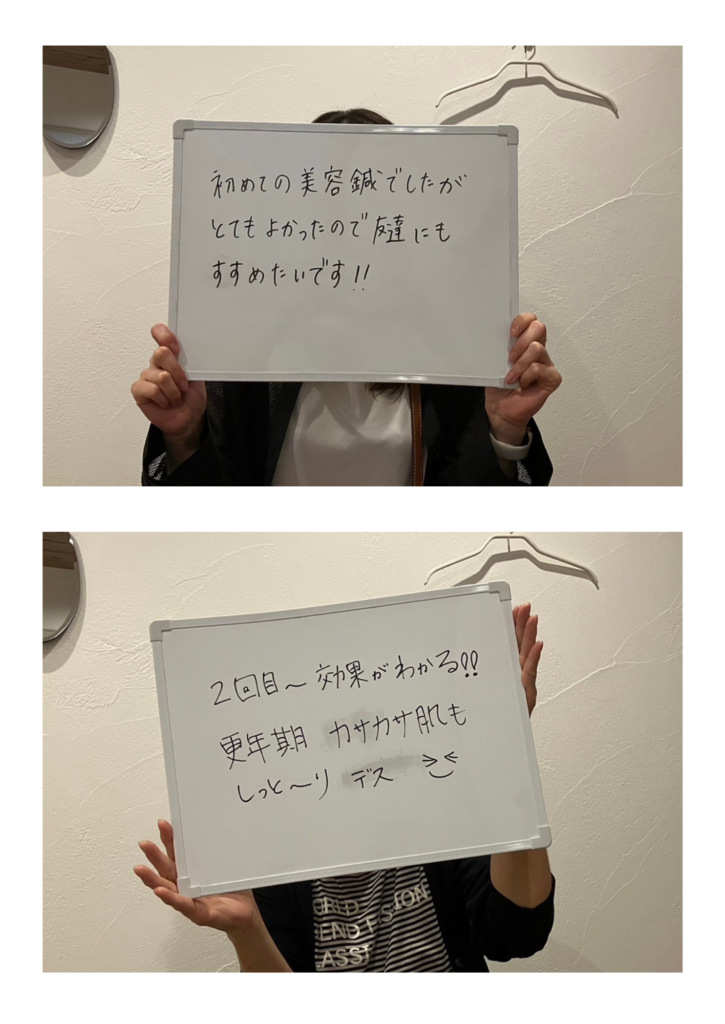 初めての美容鍼でしたが
とてもよかったので友達にも
すすめたいです!!
2回目〜効果がわかる!!
更年期 カサカサ肌も
しっと〜り デス
END
ASS